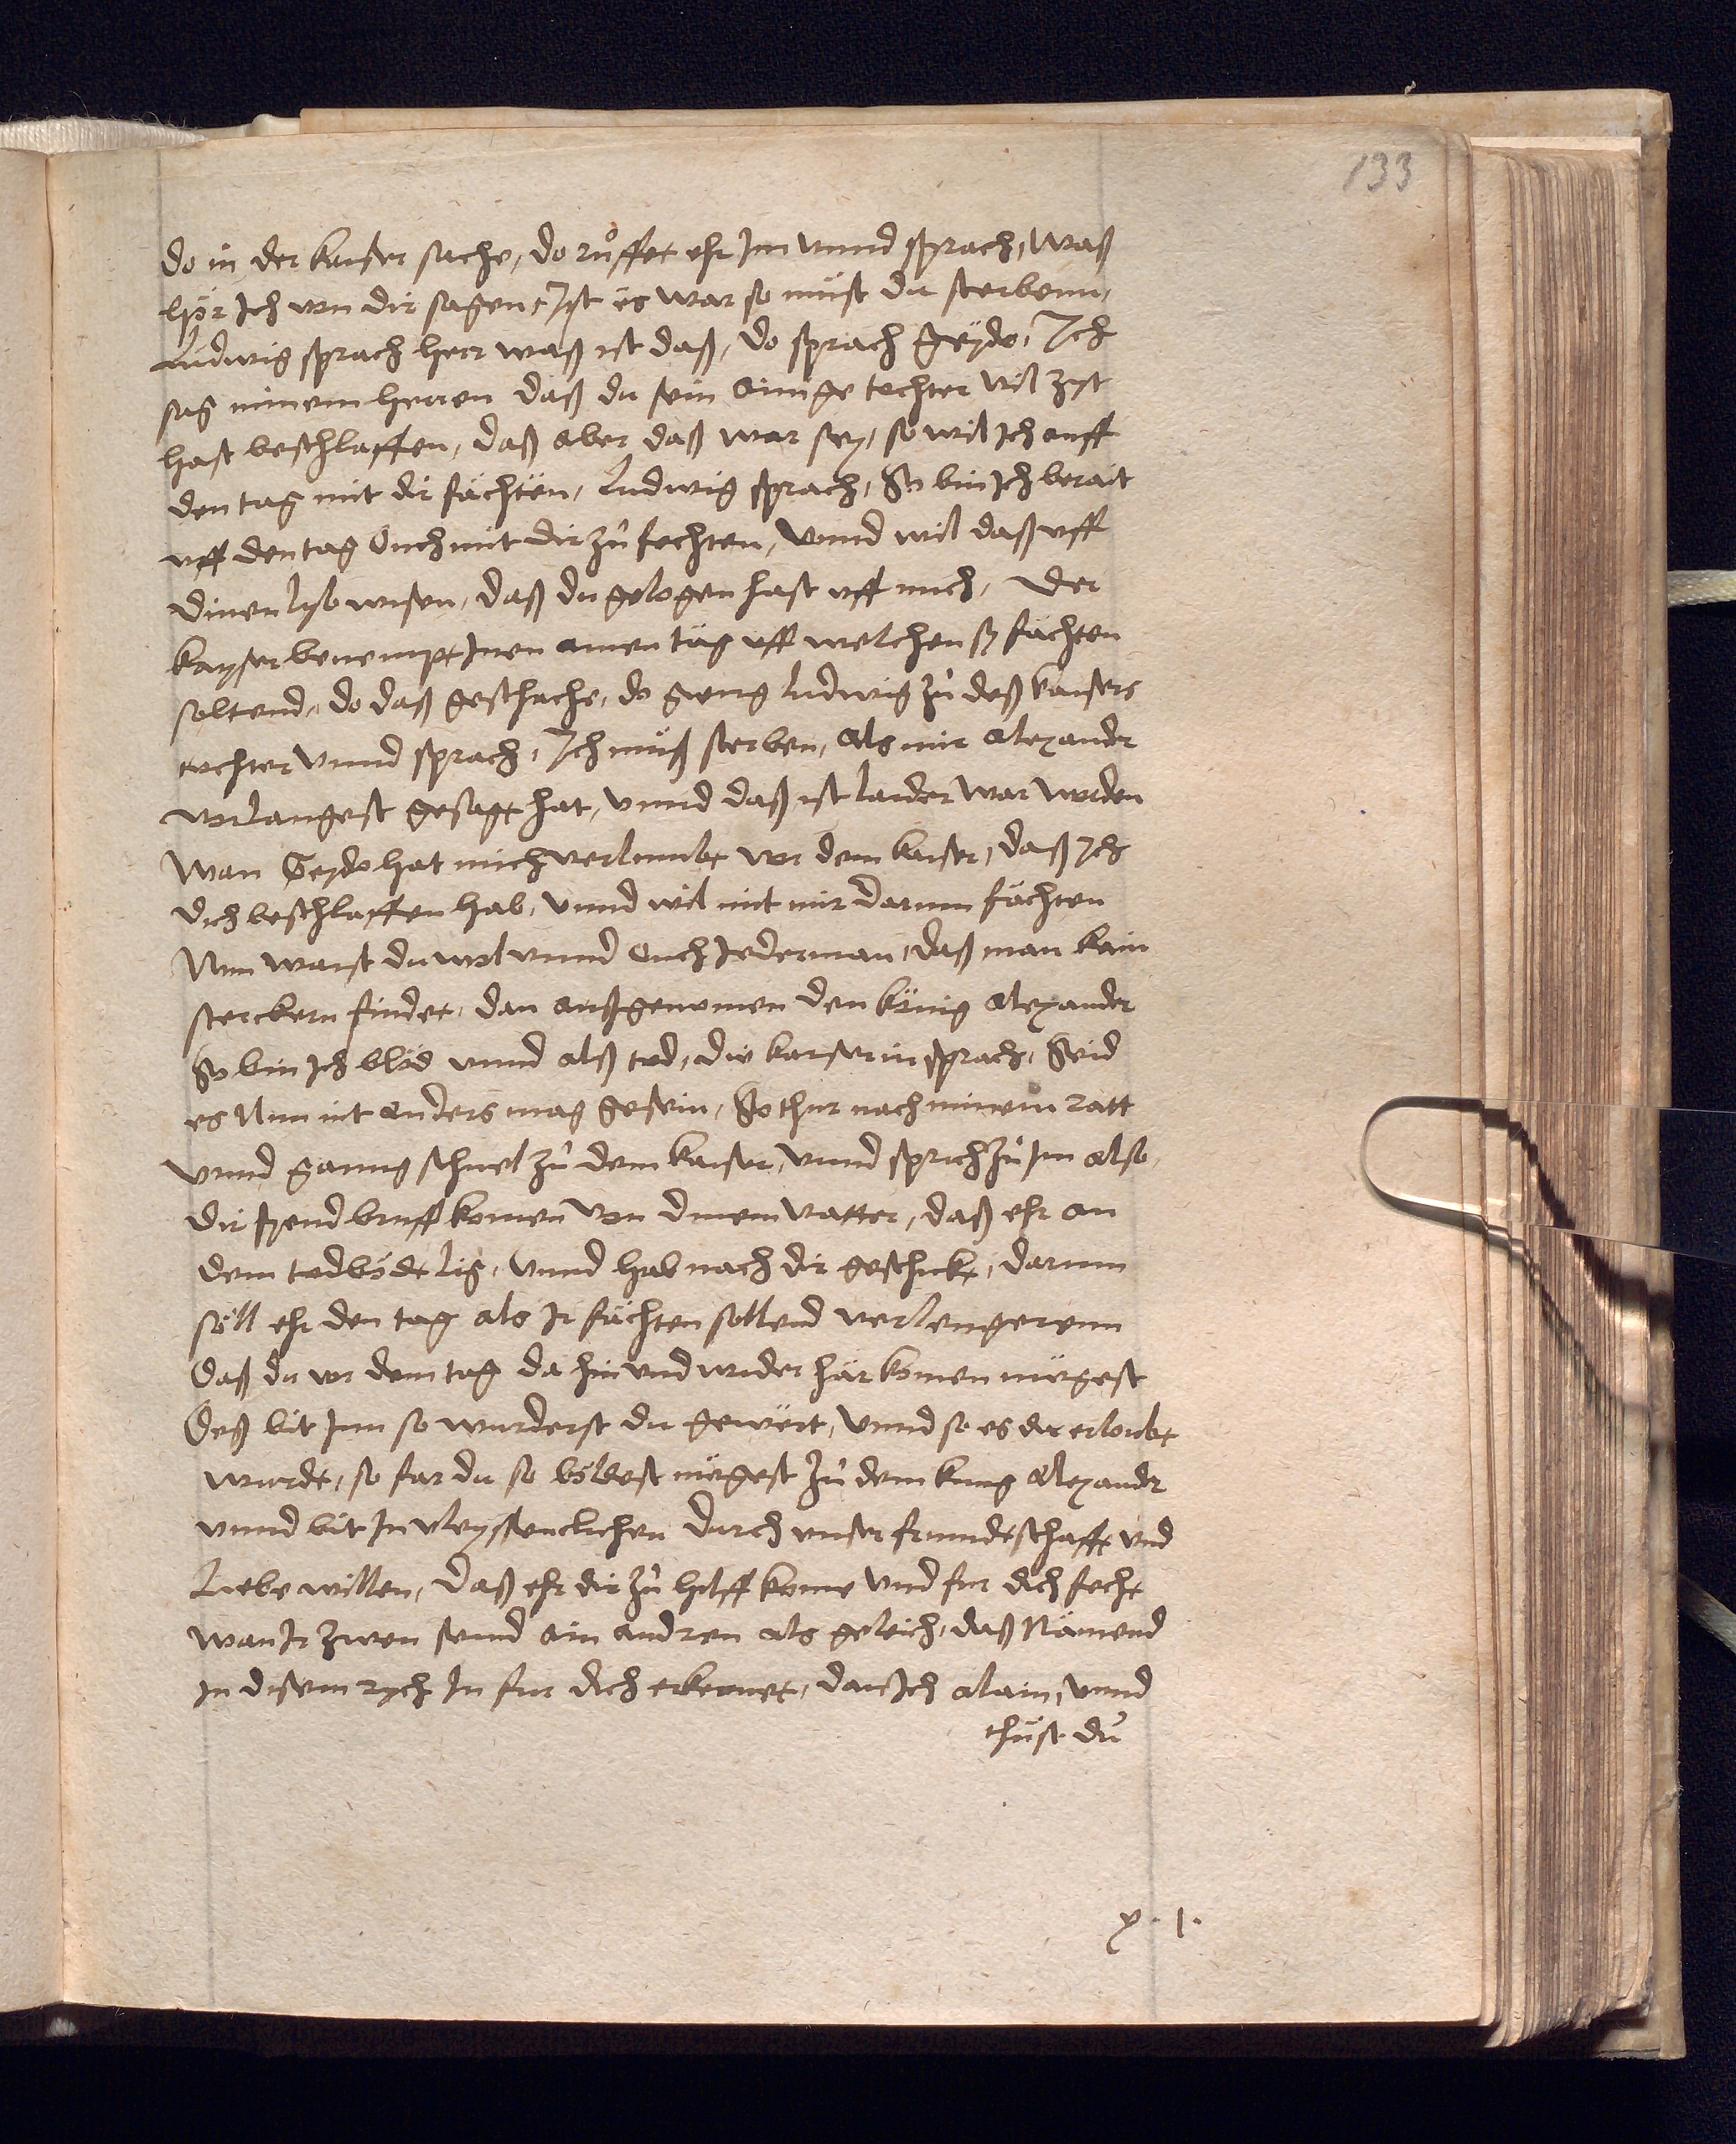 133
do in der kaiser sache, do růffet ehr Im vnnd sprach, Waß
hör Ich von dir sagen, Ist es war so must du sterbenn,
Ludwig sprach herr waß ist daß, do sprach Geydo, Ich
sag minem herren daß du sein ainige tochter vil zyt
hast beschlaffen, daß aber daß war sey, so wil Ich auff
den tag mit dir fächten, Ludwig sprach, So bin Ich berait
vff den tag Ouch mit dir zů fechten, Vnnd wil daß vff
dinen lyb wisen, daß du gelogen hast vff mich, Der
kayser benempt Inen ainen tag vff welchen sy fächten
soltend, do daß geschache, do gieng Ludwig zů deß kaisers
tochter Vnnd sprach, Ich muß sterben, Als mir Alexander
vorlangest gesagt hat, vnnd daß ist laider war worden
Wan Geydo hat mich verlumbt vor dem kaiser, daß Ich
dich beschlaffen hab, Vnnd wil mit mir darum fächten
Nun waist du wol vnnd Ouch Iederman, daß man kain
sterckern findet, dan außgenomen den künig Alexander
So bin Ich blöd vnnd alß tod, die kaiserin sprach, Seid
es Nun nit anders mag gesein, So thur nach minem ratt
vnnd ganng schnel zů dem kaiser, Vnnd sprich zů Im also,
dir syend brieff komen Von dinem vatter, daß ehr an
dem todböth lig, Vnnd hab nach dir geschickt, darum
söll ehr den tag als Ir fächten sollend verlengerenn
Daß du vor dem tag da hin vnd wider här komen mögest
Deß bit Inn so wurderst du gewert, Vnnd so es dir erloubt
wurdt, so far du so böldest mögest zů dem kunig Alexander
vnnd bit In vleyssenclichen durch vnser frundtschafft vnd
Liebe willen, Daß ehr dir zů hilff kome Vnd fur dich fecht
wan Ir zwen seind ain andren als geleich, daß Nämend
In disem rych In fur dich erkennet, dan Ich alain, Vnnd
thust du
y · I ·